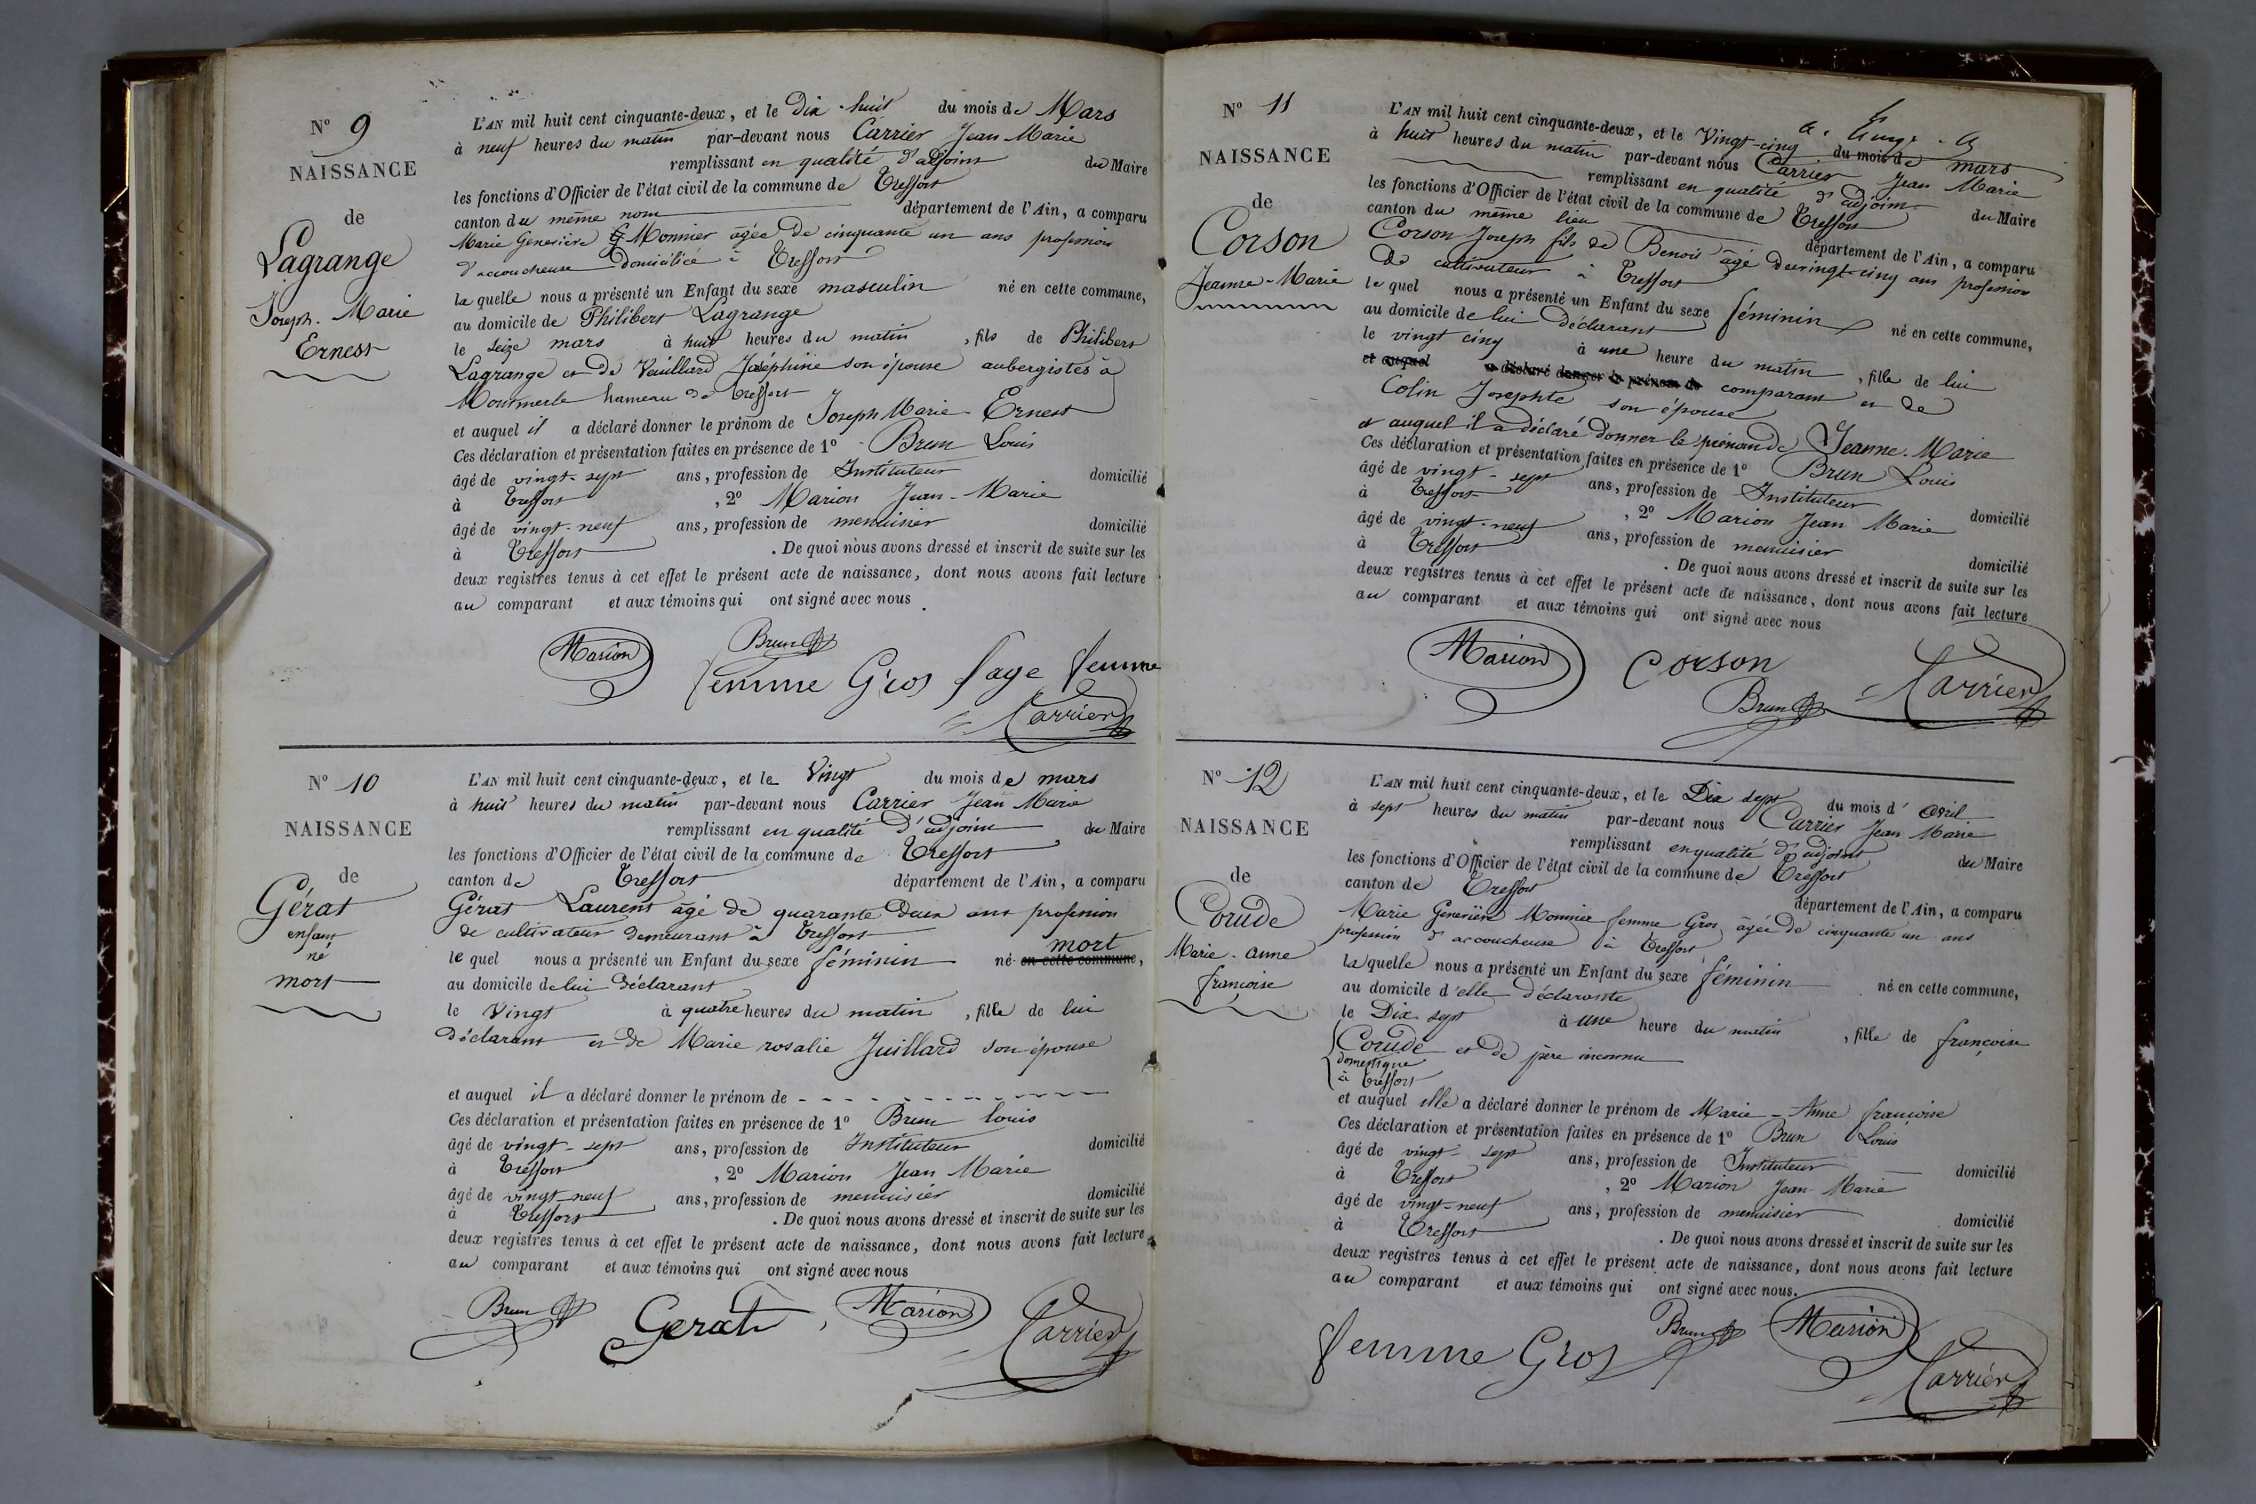 N° 9
NAISSANCE
de
Lagrange
Joseph. Marie
Ernest
L'AN mil huit cent cinquante-deux, et le Dix-huit du mois de Mars
à neuf heures du matin par-devant nous Carrier Jean Marie
remplissant en qualité d'adjoint du Maire
les fonctions d'Officier de l'état civil de la commune de Treffort
canton du même nom département de l'Ain, a comparu
Marie Geneviève Monnier âgée de cinquante un ans profession
d'accoucheuse domiciliée à Treffort
la quelle nous a présenté un Enfant du sexe masculin né en cette commune,
au domicile de Philibert Lagrange
le seize mars à huit heures du matin, fils de Philibert
Lagrange et de Vuillard Joséphine son épouse aubergistes à
Montmerle hameau de Treffort
et auquel il a déclaré donner le prénom de Joseph Marie Ernest
Ces déclaration et présentation faites en présence de 1° Brun Louis
âgé de vingt-sept ans, profession de Instituteur domicilié
à Treffort, 2° Marion Jean-Marie
âgé de vingt-neuf ans, profession de menuisier domicilié
à Treffort. De quoi nous avons dressé et inscrit de suite sur les
deux registres tenus à cet effet le présent acte de naissance, dont nous avons fait lecture
au comparant et aux témoins qui ont signé avec nous.
Marion Brun
femme Gros sage femme
Carrier
N° 10
NAISSANCE
de
Gérat
enfant
né
mort
L'AN mil huit cent cinquante-deux, et le Vingt du mois de mars
à huit heures du matin par-devant nous Carrier Jean Marie
remplissant en qualité d'adjoint du Maire
les fonctions d'Officier de l'état civil de la commune de Treffort
canton de Treffort département de l'Ain, a comparu
Gérat Laurent âgé de quarante deux ans profession
de cultivateur demeurant à Treffort
mort
le quel nous a présenté un Enfant du sexe féminin né en cette commune,
au domicile de lui déclarant
le Vingt à quatre heures du matin, fille de lui
déclarant et de Marie rosalie Juillard son épouse
et auquel il a déclaré donner le prénom de - - - - - - - - - -
Ces déclaration et présentation faites en présence de 1° Brun louis
âgé de vingt-sept ans, profession de Instituteur domicilié
à Treffort, 2° Marion Jean Marie
âgé de vingt-neuf ans, profession de menuisier domicilié
à Treffort. De quoi nous avons dressé et inscrit de suite sur les
deux registres tenus à cet effet le présent acte de naissance, dont nous avons fait lecture
au comparant et aux témoins qui ont signé avec nous
Brun Gerat Marion Carrier
N° 11
NAISSANCE
de
Corson
Jeanne-Marie
L'AN mil huit cent cinquante-deux, et le Vingt-cinq du mois de mars
à huit heures du matin par-devant nous Carrier Jean Marie
remplissant en qualité d'adjoint du Maire
les fonctions d'Officier de l'état civil de la commune de Treffort
canton du même lieu département de l'Ain, a comparu
Corson Joseph fils de Benoit âgé de vingt-cinq ans profession
de cultivateur à Treffort
le quel nous a présenté un Enfant du sexe féminin né en cette commune,
au domicile de lui déclarant
le vingt cinq à une heure du matin, fille de lui
et auquel a déclaré donner le prénom de comparant et de
Colin Josephte son épouse
et auquel il a déclaré donner le prénom de Jeanne-Marie
Ces déclaration et présentation faites en présence de 1° Brun Louis
âgé de vingt-sept ans, profession de Instituteur domicilié
à Treffort, 2° Marion Jean Marie
âgé de vingt-neuf ans, profession de menuisier domicilié
à Treffort. De quoi nous avons dressé et inscrit de suite sur les
deux registres tenus à cet effet le présent acte de naissance, dont nous avons fait lecture
au comparant et aux témoins qui ont signé avec nous
Marion Corson Carrier
Brun
N° 12
NAISSANCE
de
Corude
Marie-anne
françoise
L'AN mil huit cent cinquante-deux, et le Dix sept du mois d'avril
à sept heures du matin par-devant nous Carrier Jean Marie
remplissant en qualité d'adjoint du Maire
les fonctions d'Officier de l'état civil de la commune de Treffort
canton de Treffort département de l'Ain, a comparu
Marie Geneviève Monnier femme Gros âgée de cinquante un ans
profession d'accoucheuse à Treffort
la quelle nous a présenté un Enfant du sexe féminin né en cette commune,
au domicile d'elle déclarante
le Dix sept à une heure du matin, fille de françoise
Corude et de père inconnu
domestique
à Treffort
et auquel elle a déclaré donner le prénom de Marie-Anne françoise
Ces déclaration et présentation faites en présence de 1° Brun Louis
âgé de vingt-sept ans, profession de Instituteur domicilié
à Treffort, 2° Marion Jean-Marie
âgé de vingt-neuf ans, profession de menuisier domicilié
à Treffort. De quoi nous avons dressé et inscrit de suite sur les
deux registres tenus à cet effet le présent acte de naissance, dont nous avons fait lecture
au comparant et aux témoins qui ont signé avec nous.
femme Gros Brun Marion
Carrier